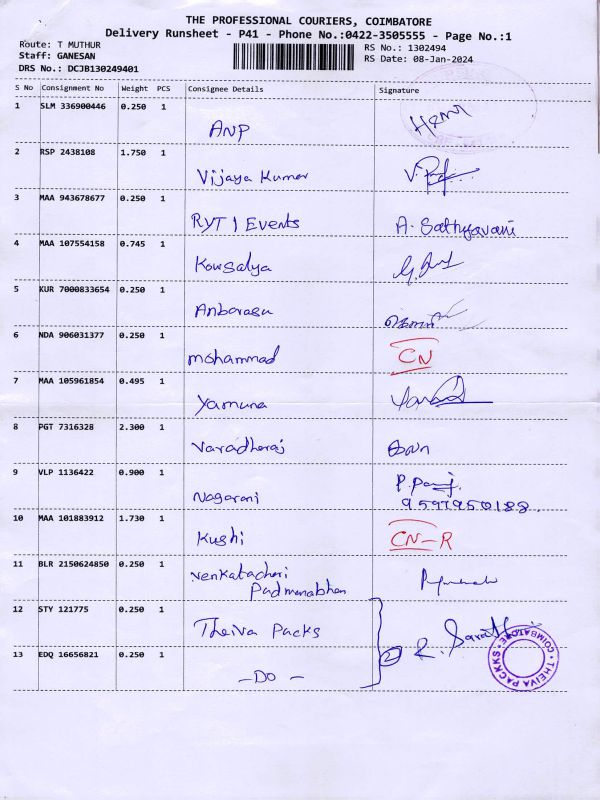 THE PROFESSIONAL COURIERS, COIMBATORE
Delivery Runsheet - P41 - Phone No.:0422-3505555 - Page No.:1
Route: T MUTHUR
RS No.: 1302494
Staff: GANESAN
RS Date: 08-Jan-2024
DRS No.: DCJB130249401
S No Consignment No Weight PCS Consignee Details Signature
1 SLM 336900446 0.250 1
ANP
2 RSP 2438108 1.750 1
Vijaya Kumar
3 MAA 943678677 0.250 1
RYT 1 Events A. Sathyavani
4 MAA 107554158 0.745 1
Kowsalya
5 KUR 7000833654 0.250 1
Anbarasu
6 NDA 906031377 0.250 1
mohammad CN
7 MAA 105961854 0.495 1
Yamuna
8 PGT 7316328 2.300 1
Varadharaj
9 VLP 1136422 0.900 1
Nagarani
9597950188.
10 MAA 101883912 1.730 1
Kushi CN-R
11 BLR 2150624850 0.250 1
Venkatachari
Padmanabhan
12 STY 121775 0.250 1
Theiva Packs
2 R. Sarath
THEIVA PACKKS COIMBATORE
13 EDQ 16656821 0.250 1
-DO -